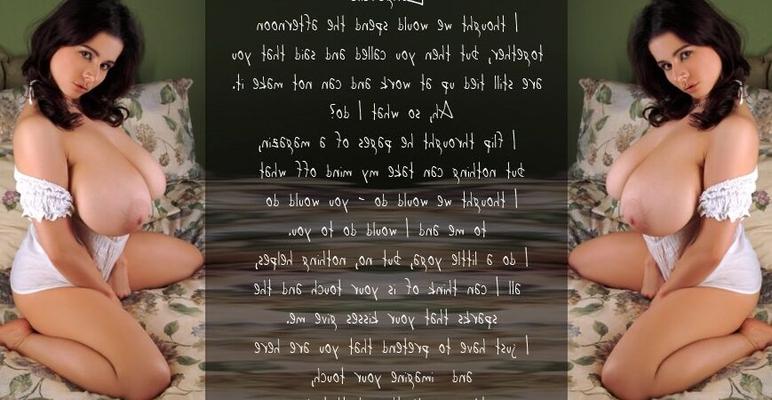 I thought we would spend the afternoon
together, but then you called and said that you
are still tied up at work and can not make it.
Ah, so what do I do?
I flip throught he pages of a magazin,
but nothing can take my mind off what
I thought we would do - you would do
to me and I would do to you.
I do a little yoga, but no, nothing helpes,
all I can think of is your touch and the
sparks that your kisses give me.
I just have to pretend that you are here
and imagine your touch,